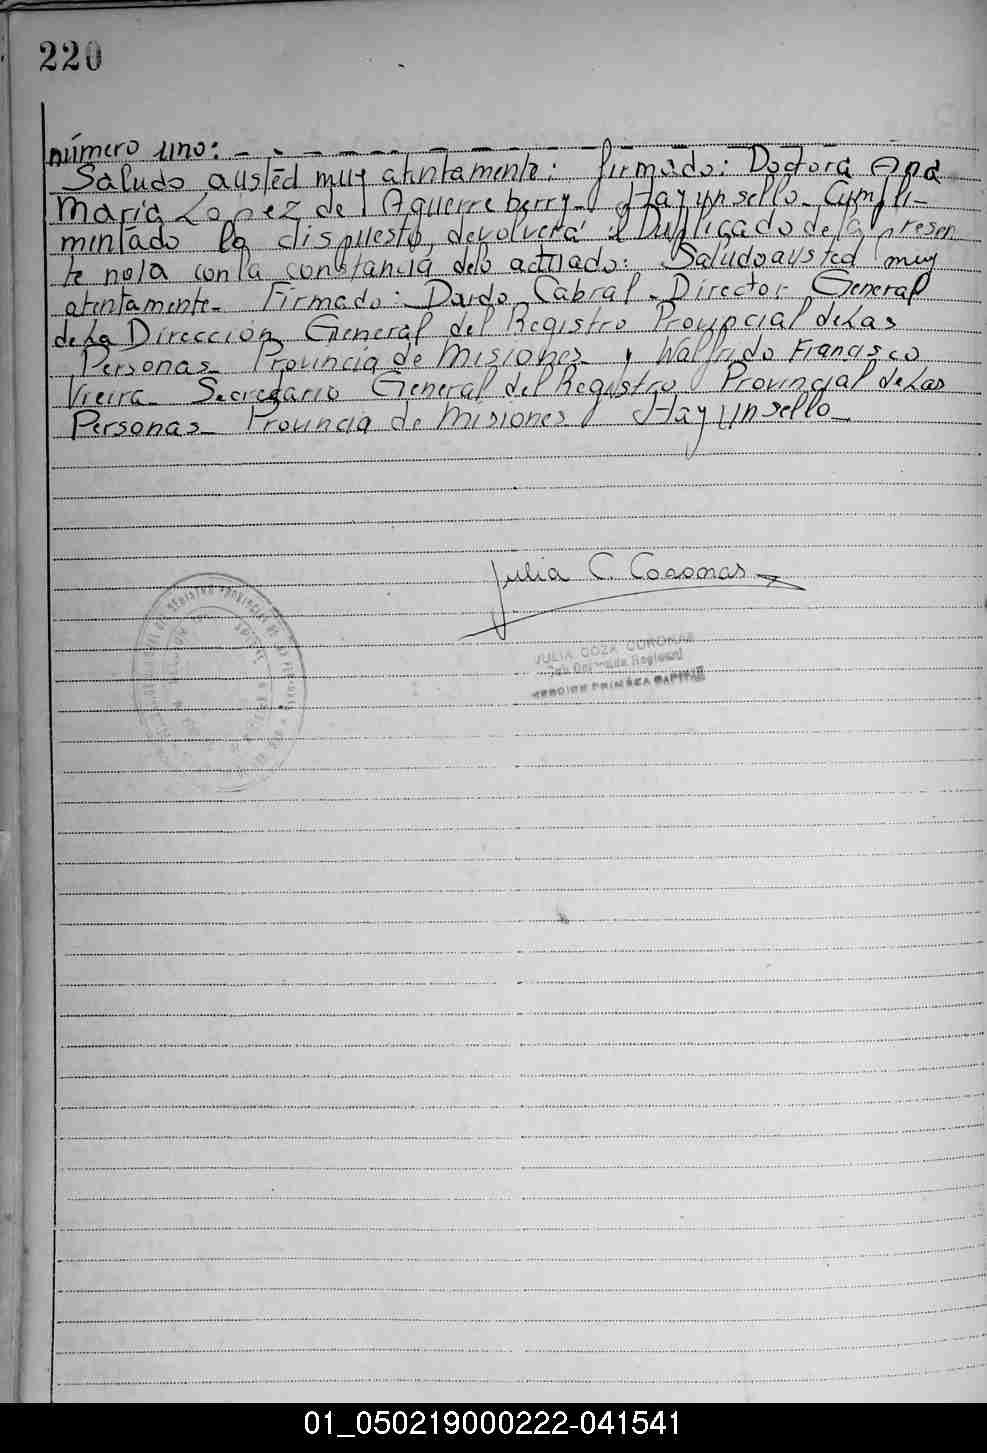 220
número uno: _ _ _ _ _ _ _ _ _ _ _ _ _
Saludo austed muy atentamente: firmado: Doctora Ana
María Lopez de Aguerreberry_ Hay un sello_ Cumpli-
mentado lo dispuesto, devolverá el Duplicado de la presen
te nota con la constancia delo actuado: Saludo austed muy
atentamente_ Firmado: Dardo Cabral_ Director General
de La Dirección General del Registro Provincial de Las
Personas_ Provincia de Misiones_ y Walfrido Francisco
Vieira_ Secretario General del Registro Provincial de Las
Personas_ Provincia de Misiones Hay un sello_
Julia C. Coronas
JULIA CORONAS
SECCION PRIMERA CAPITAL
01_050219000222-041541